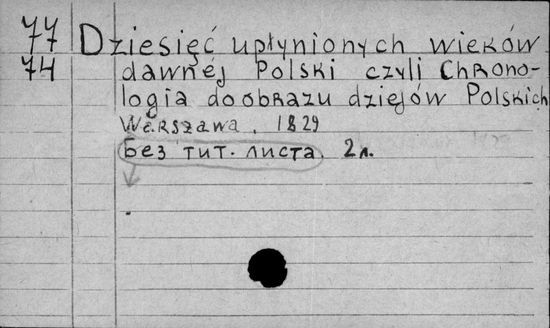 77 Dziesięć upłynionych wieków
74 dawnéj Polski czyli Chrono-
logia do obrazu dziejów Polskich
Warszawa. 1829
Без тит. листа. 2 л.